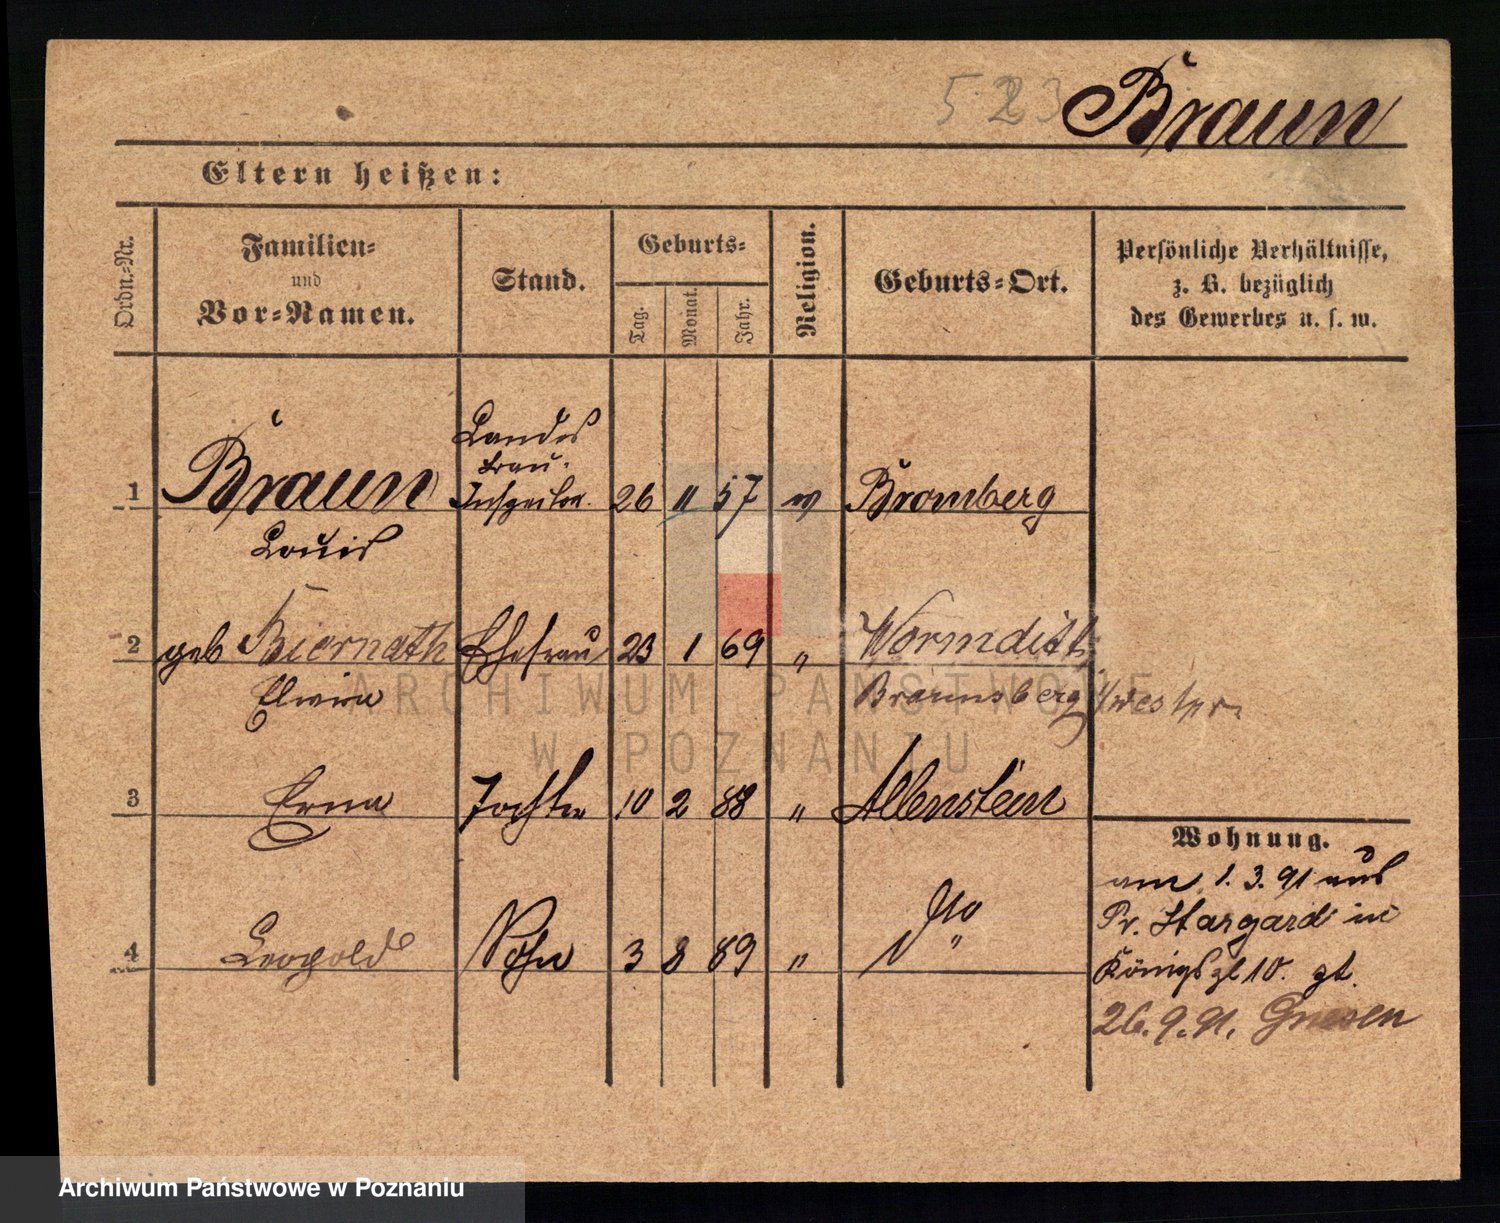 523 Braun
Eltern heißen:
Ordn.-Nr.
Familien-
und
Vor-Namen.
Stand.
Geburts-
Tag.
Monat.
Jahr.
Religion.
Geburts-Ort.
Persönliche Verhältnisse,
z. B. bezüglich
des Gewerbes u. s. w.
Landes
bau.
1 Braun Inspektor. 26 11 57 Bromberg
Louis
2 geb Biernath Ehefrau 23 1 69 " Wormditt
Elvira Braunsberg
3 Erna Tochter 10 2 88 " Allenstein
Wohnung.
am 1. 3. 91 aus
Pr. Stargard in
4 Leopold Sohn 3 8 89 " "
Königspl 10. gt.
26. 9. 91. Gnesen
ARCHIWUM PAŃSTWOWE
W POZNANIU
Archiwum Państwowe w Poznaniu